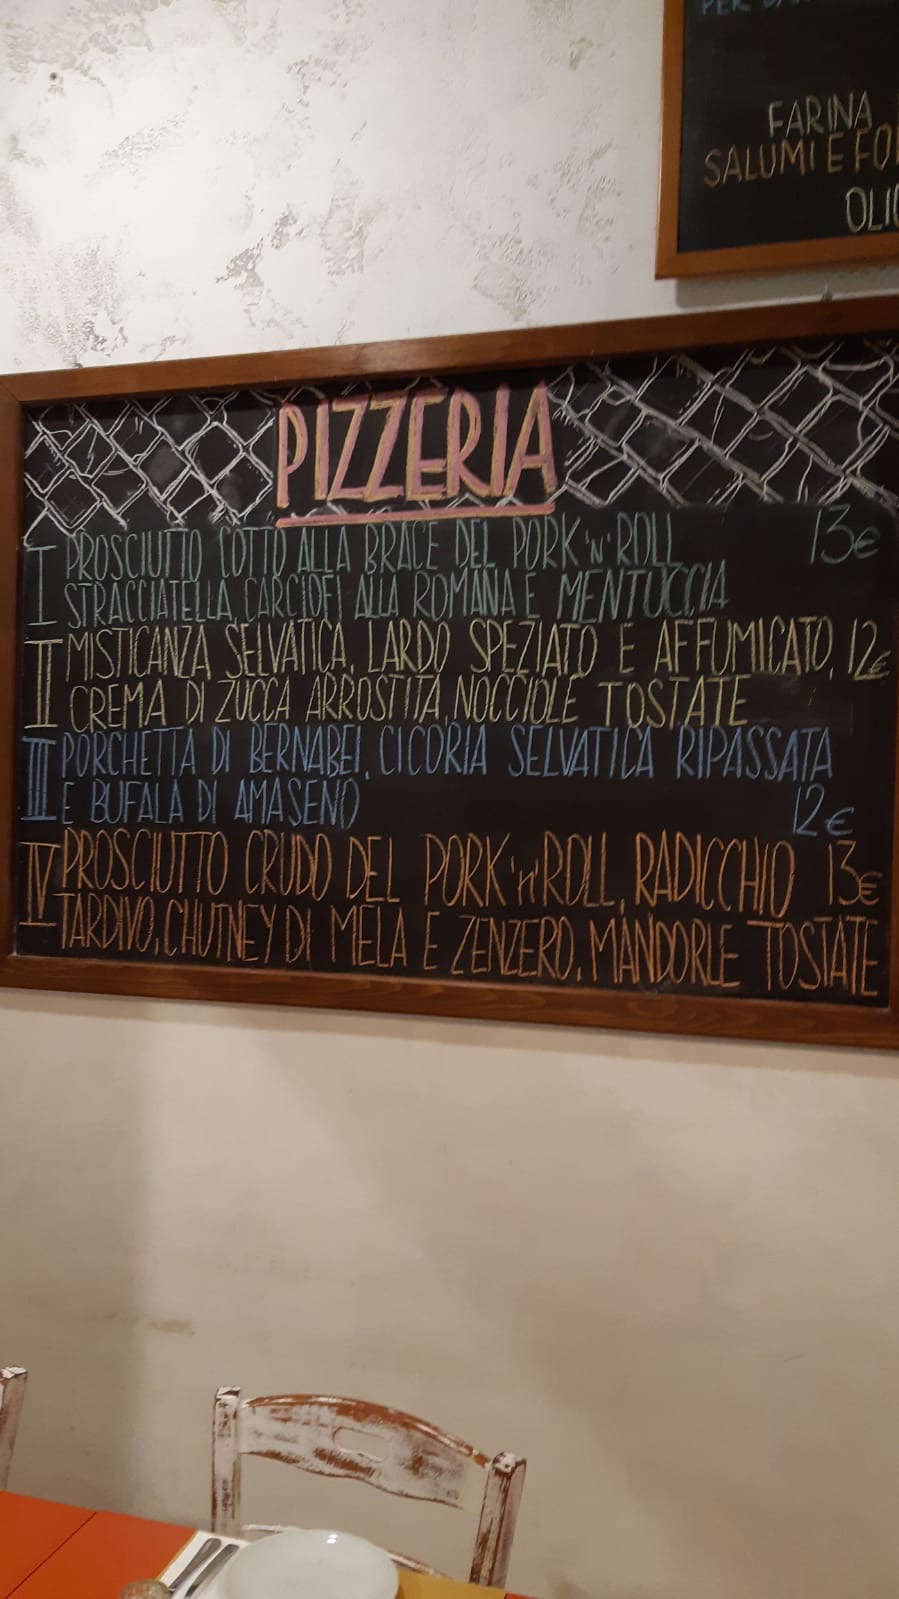 FARINA
SALUMI E
PIZZERIA
I PROSCIUTTO COTTO ALLA BRACE DEL PORK'N'ROLL 13€
STRACCIATELLA, CARCIOFI ALLA ROMANA E MENTUCCIA
II MISTICANZA SELVATICA, LARDO SPEZIATO E AFFUMICATO, 12€
CREMA DI ZUCCA ARROSTITA, NOCCIOLE TOSTATE
III PORCHETTA DI BERNABEI, CICORIA SELVATICA RIPASSATA
E BUFALA DI AMASENO 12€
IV PROSCIUTTO CRUDO DEL PORK'N'ROLL, RADICCHIO 13€
TARDIVO, CHUTNEY DI MELA E ZENZERO, MANDORLE TOSTATE